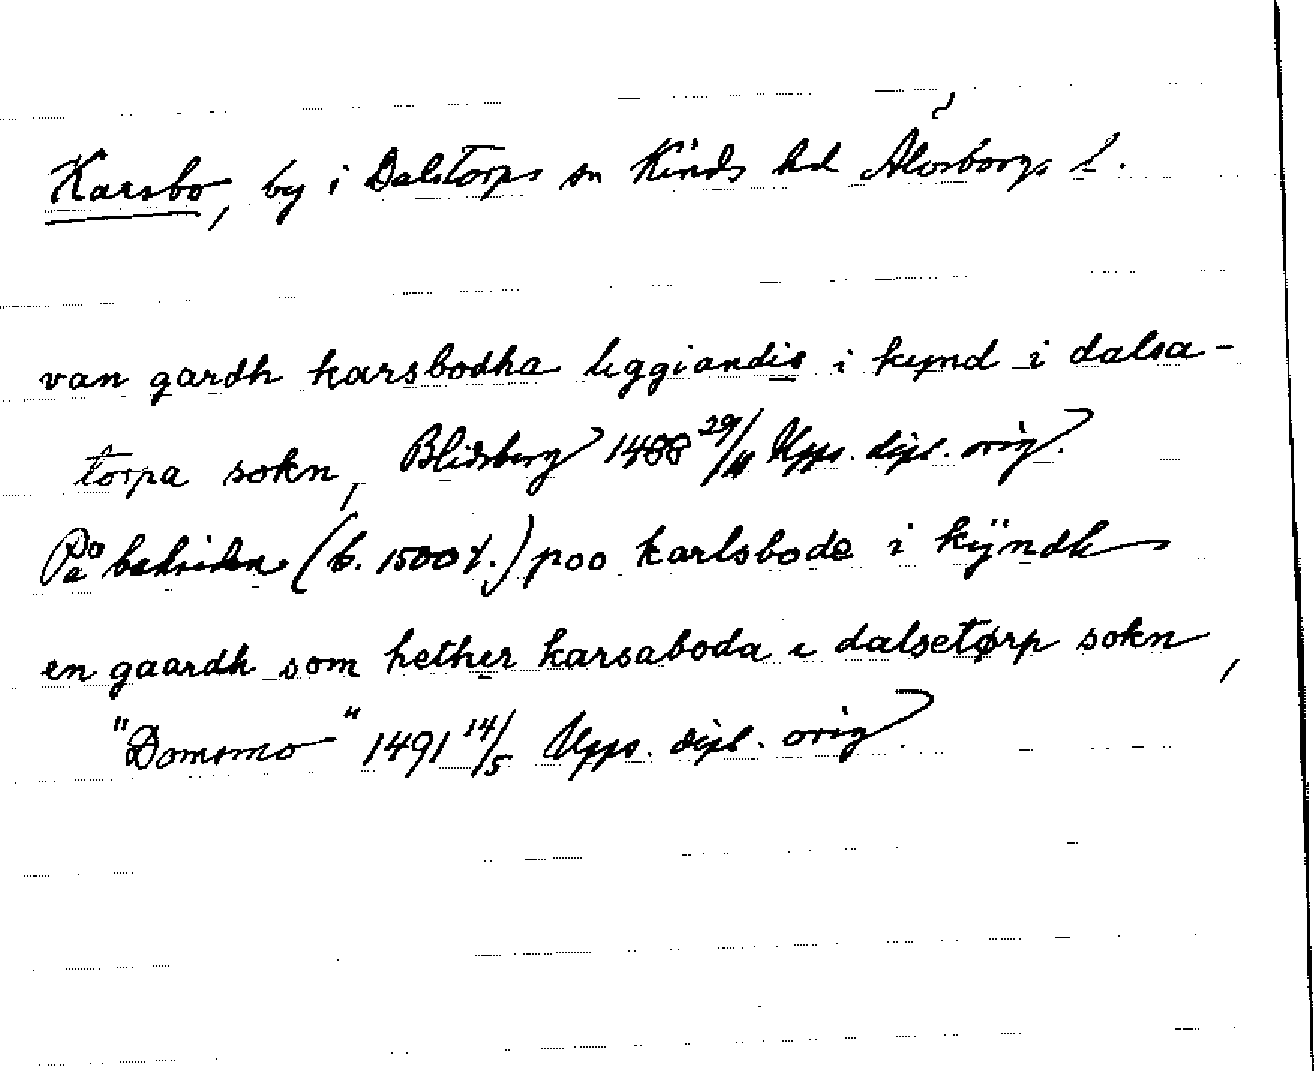 Karsbo, by i Dalstorps sn Kinds hd Älvsborgs l.
van gardh karsbodha liggiandis i kynd i dalsa-
torpa sokn, Blidsberg 1488 29/11 Upps. dipl. orig.
På baksidan (b. 1500t.) poo karlsbode i kÿndh
en gaardh som hether karsaboda i dalsetørp sokn,
"Domomo" 1491 14/5 Upps. dipl. orig.